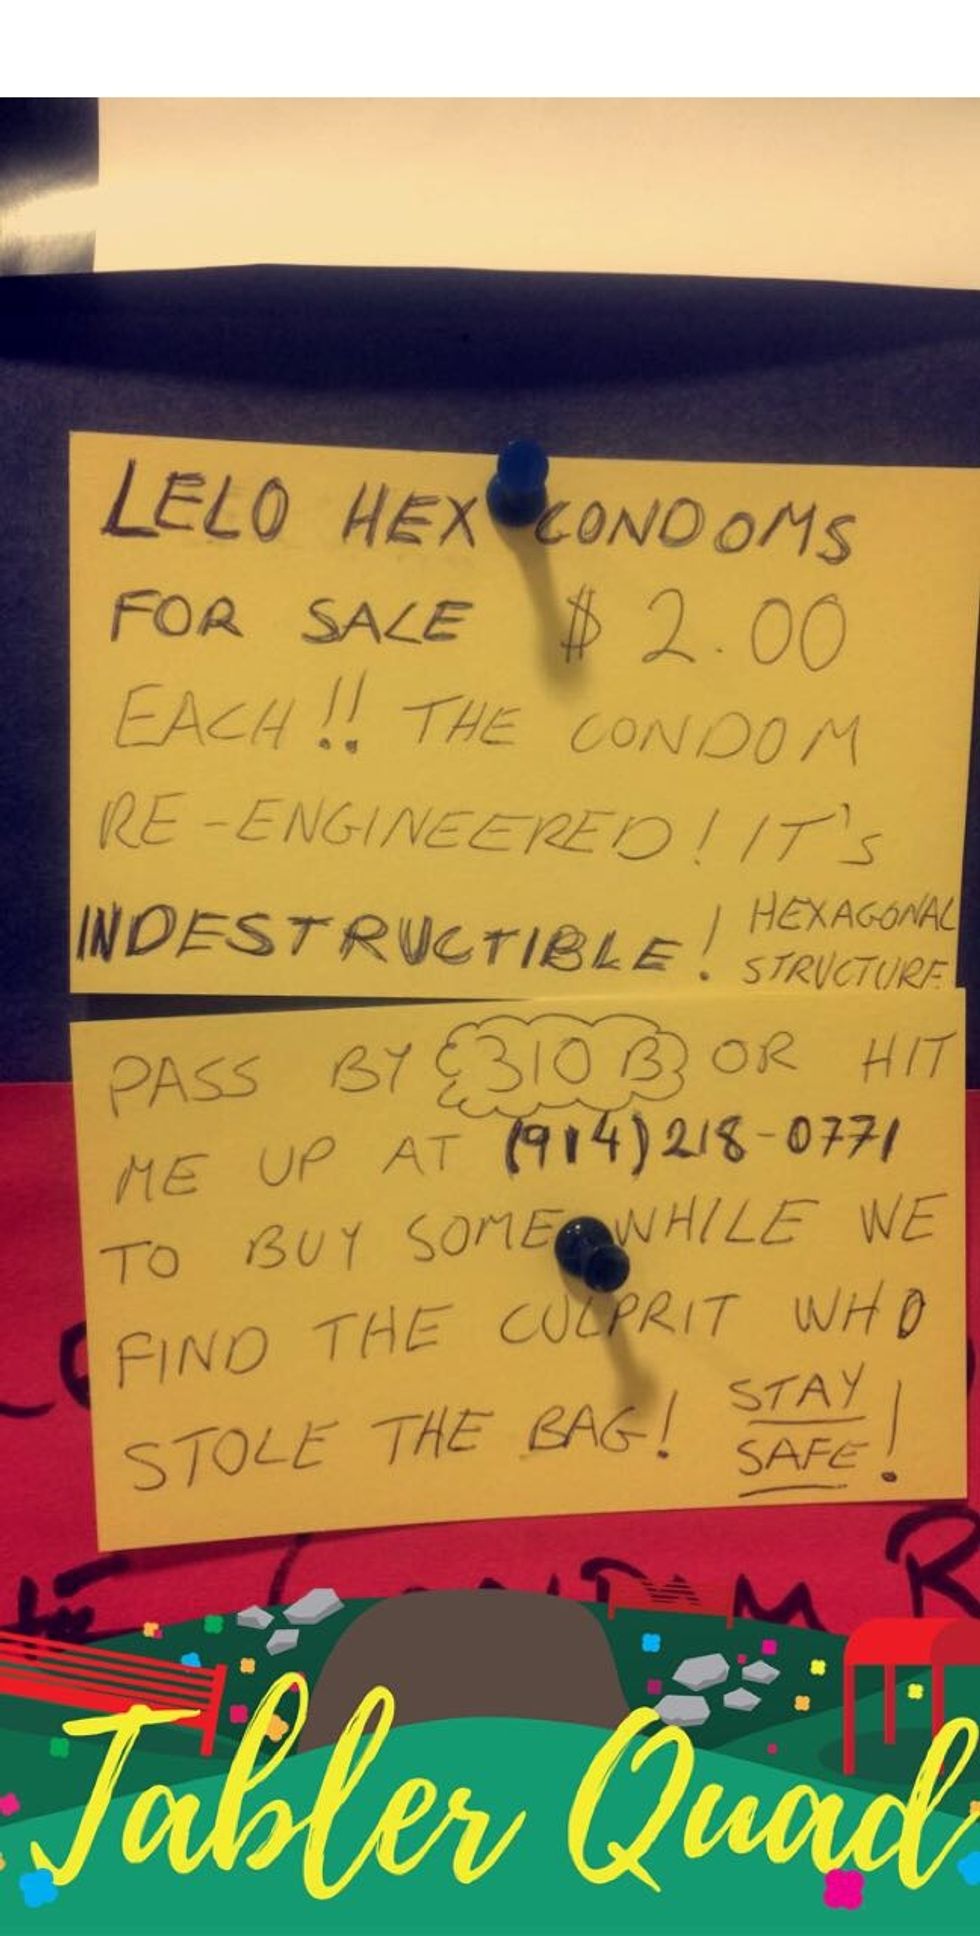 LELO HEX CONDOMS
FOR SALE $2.00
EACH!! THE CONDOM
RE-ENGINEERED! IT'S
INDESTRUCTIBLE! HEXAGONAL
STRUCTURE
PASS BY 310 B OR HIT
ME UP AT (914)218-0771
TO BUY SOME WHILE WE
FIND THE CULPRIT WHO
STOLE THE BAG! STAY
SAFE!
Tabler Quad